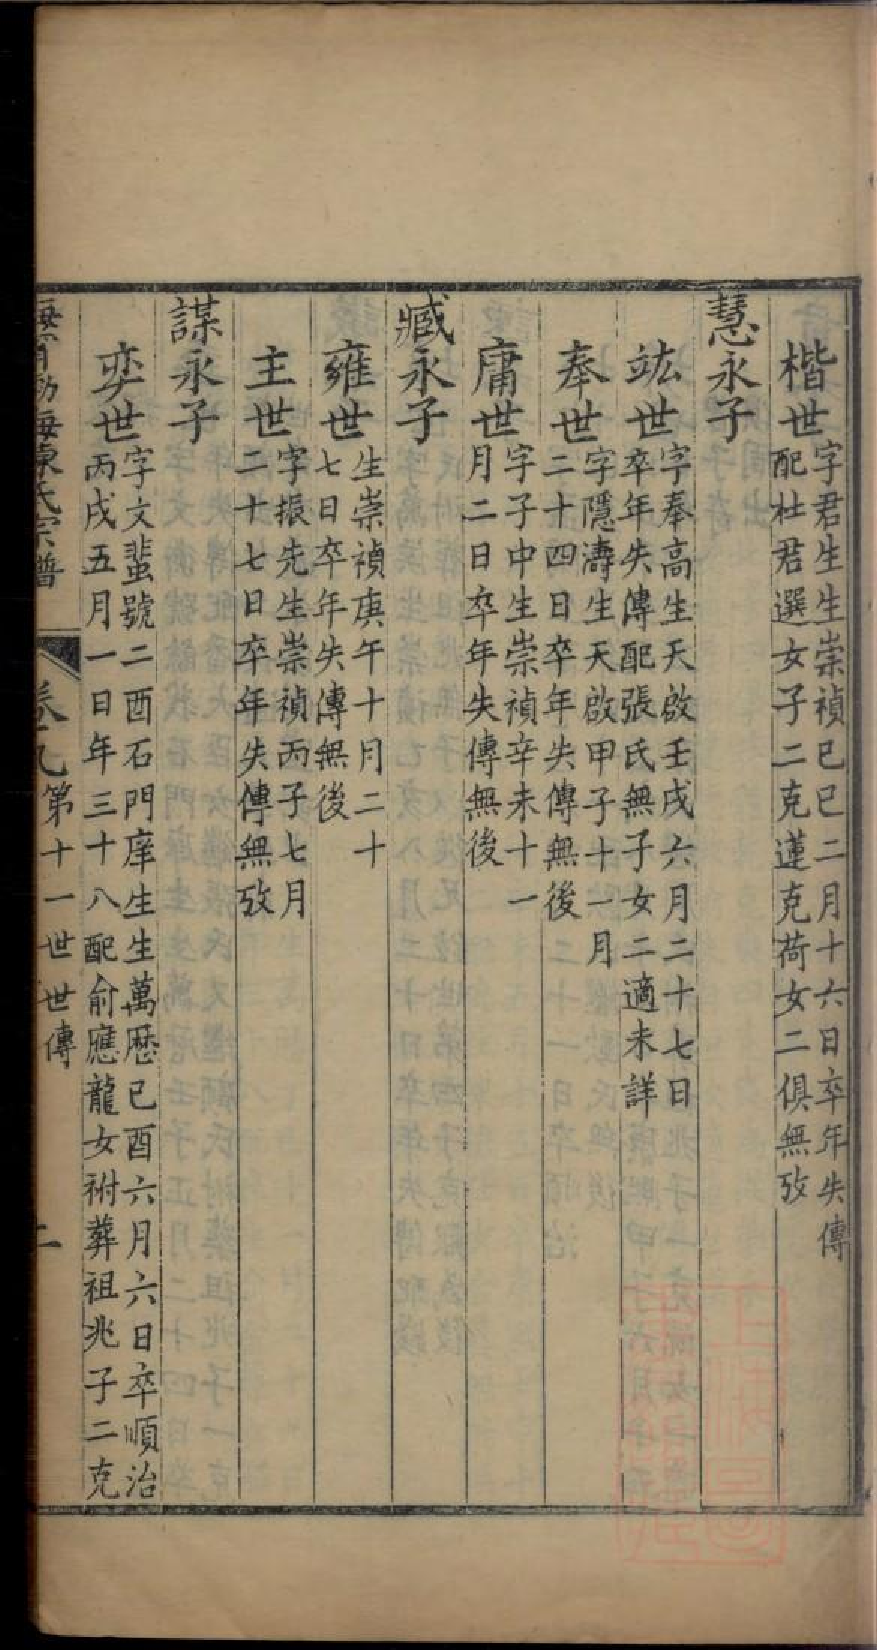 楷世
字君生生崇禎己巳二月十六日卒年失傳
配杜君選女子二克蓮克荷女二俱無攷
慧永子
竑世
字奉高生天啟壬戌六月二十七日
卒年失傳配張氏無子女二適未詳
奉世
字隱濤生天啟甲子十一月
二十四日卒年失傳無後
庸世
字子中生崇禎辛未十一
月二日卒年失傳無後
臧永子
雍世
生崇禎庚午十月二十
七日卒年失傳無後
主世
字振先生崇禎丙子七月
二十七日卒年失傳無攷
謀永子
奕世
字文蜚號二酉石門庠生生萬歷己酉六月六日卒順治
丙戌五月一日年三十八配俞應龍女祔葬祖兆子二克
海陳氏宗譜
卷九
第十一世世傳
二